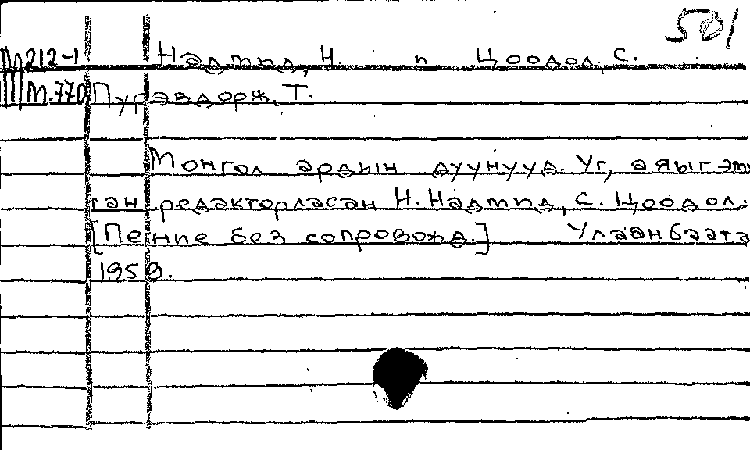 501
М212-1 Надмид, Н. и Цоодол, С.
М.770 Пурэвдорж, Т.
Монгол ардын дуунууд. Уг, аяыг эмх
гэн редакторласан Н. Надмид, С. Цоодол.
[Пение без сопровожд.] Улаанбаата
1959.